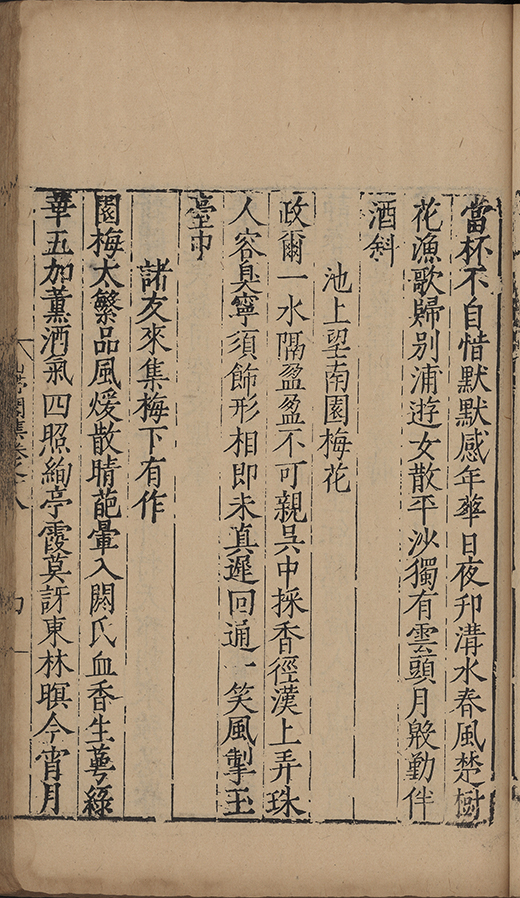 當杯不自惜默默感年華日夜邗溝水春風楚樹
花漁歌歸別浦遊女散平沙獨有雲頭月殷勤伴
酒斜
池上望南園梅花
政爾一水隔盈盈不可親吳中採香徑漢上弄珠
人容具寧須飾形相即未真遲回通一笑風掣玉
臺巾
諸友來集梅下有作
園梅太繁品風煖散晴葩暈入閼氏血香生萼綠
華五加薰酒氣四照絢亭霞莫訝東林暝今宵月
閣集卷之八